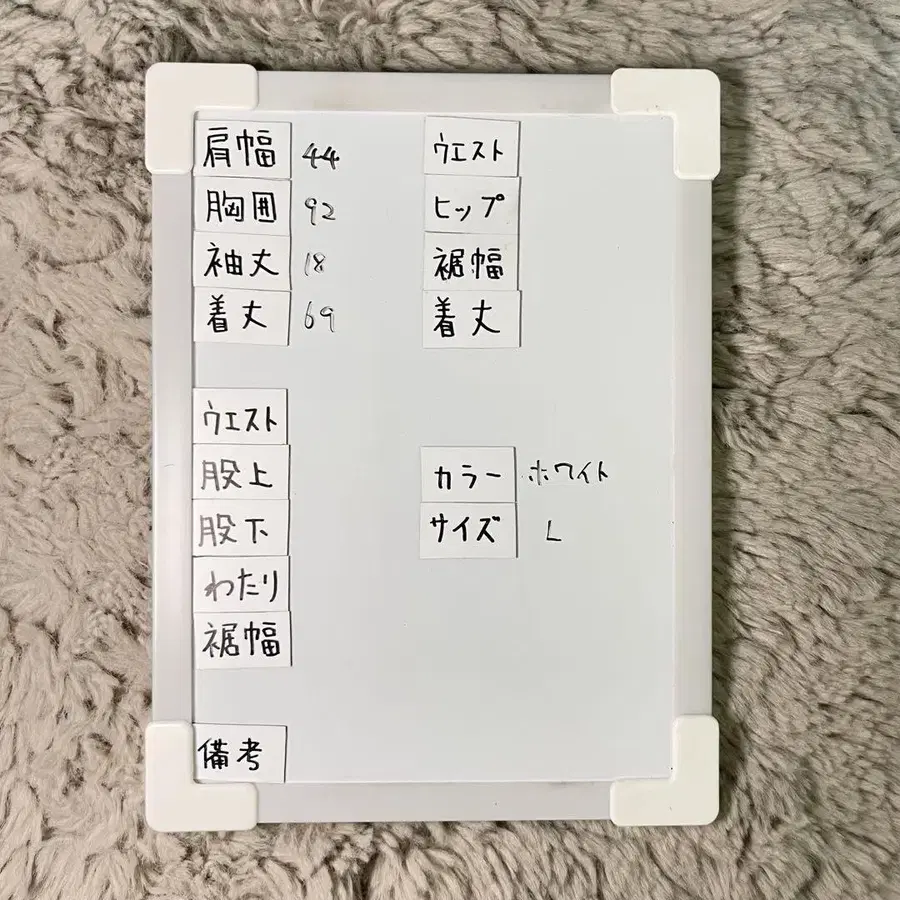 肩幅 44
胸囲 92
袖丈 18
着丈 69
ウエスト
ヒップ
裾幅
着丈
ウエスト
股上
股下
わたり
裾幅
カラー ホワイト
サイズ L
備考